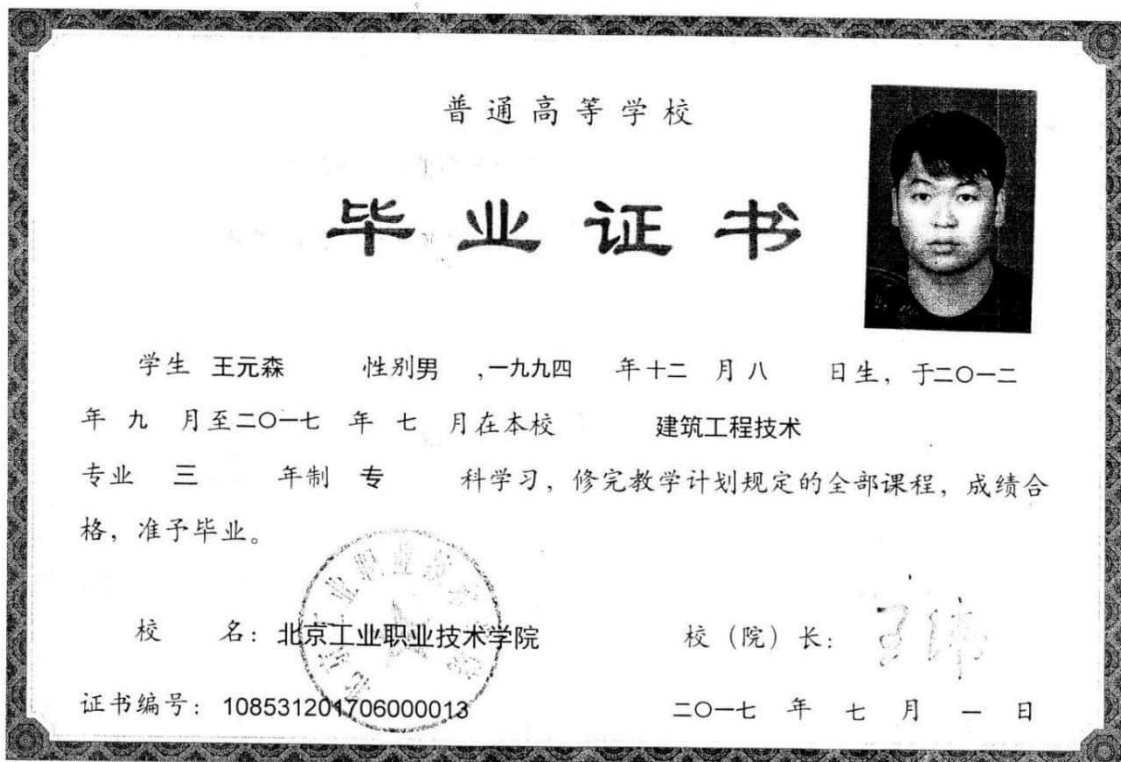 普通高等学校
毕业证书
学生 王元森 性别男 ,一九九四 年十二 月八 日生，于二〇一二
年 九 月至二〇一七 年 七 月在本校 建筑工程技术
专业 三 年制 专 科学习，修完教学计划规定的全部课程，成绩合
格，准予毕业。
校 名：北京工业职业技术学院 校（院）长：
证书编号：108531201706000013 二〇一七 年 七 月 一 日